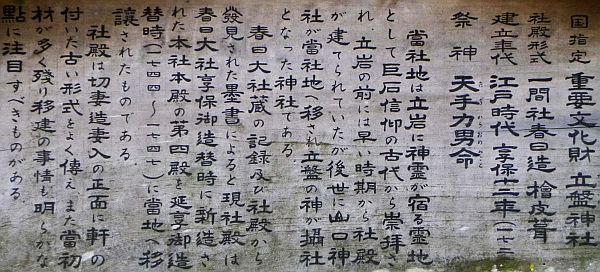 国指定 重要文化財 立盤神社
社殿形式 一間社春日造 檜皮葺
建立年代 江戸時代 享保十二年(一七二
祭神 天手力男命
たぢからおのみこと
當社地は立岩に神霊が宿る霊地
として巨石信仰の古代から崇拝さ
れ、立岩の前には早い時期から社殿
が建てられていたが後世に山口神
社が當社地へ移され立盤の神が攝社
となった神社である
春日大社蔵の記録及び社殿から
發見された墨書によると現社殿は
春日大社享保御造替時に新造さ
れた本社本殿の第四殿を延享御造
替時(一七四四〜一七四七)に当地へ移
譲されたものである
社殿は切妻造妻入の正面に軒の
付いた古い形式をよく傳え、また當初
材が多く残り移建の事情も明らかな
點に注目すべきものがある